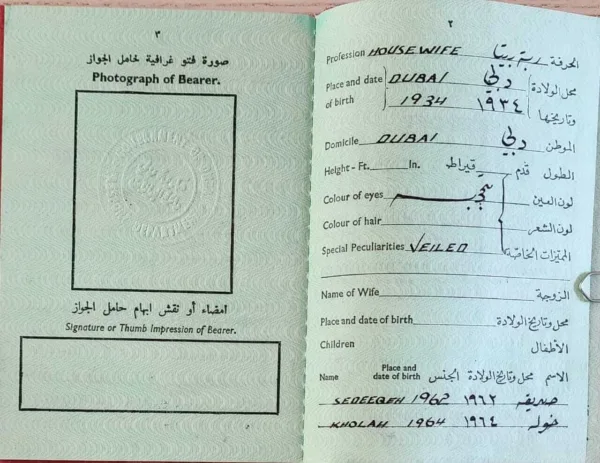 ٢
Profession HOUSEWIFE ربة بيت الحرفة
Place and date of birth DUBAI دبي محل الولادة
1934 ١٩٣٤ وتاريخها
Domicile DUBAI دبي الموطن
Height - Ft. In. قيراط قدم الطول
Colour of eyes لون العين
Colour of hair لون الشعر
Special Peculiarities VEILED المميزات الخاصة
Name of Wife الزوجة
Place and date of birth محل وتاريخ الولادة
Children الأطفال
Name Place and date of birth الاسم محل وتاريخ الولادة الجنس
SEDEEQEH 1962 ١٩٦٢ صديقه
KHOLAH 1964 ١٩٦٤ خوله
٣
صورة فتو غرافية لحامل الجواز
Photograph of Bearer.
امضاء أو نقش ابهام حامل الجواز
Signature or Thumb Impression of Bearer.